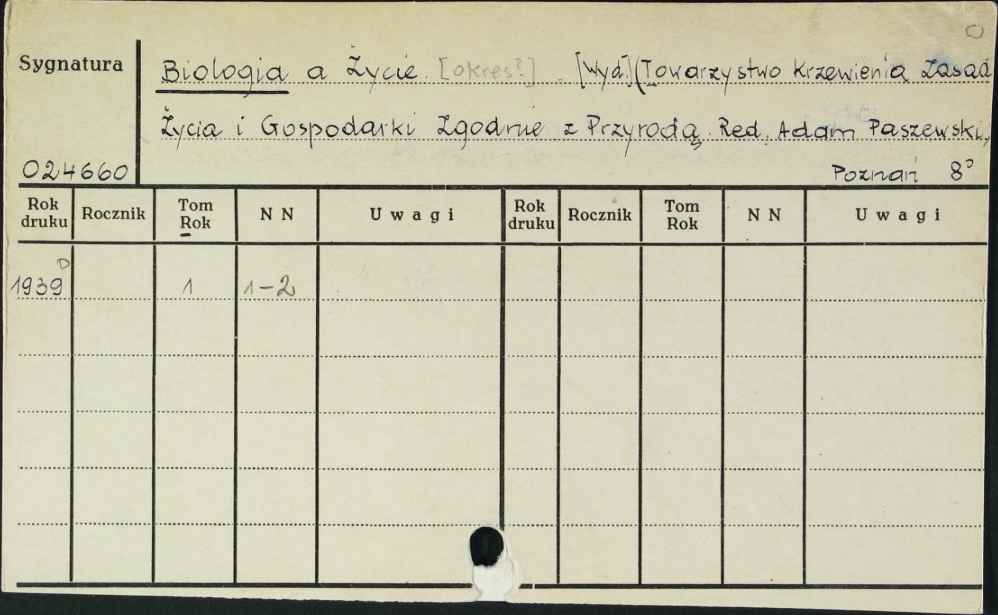 Sygnatura
Biologia a Życie [okres?] [Wyd.](Towarzystwo Krzewienia Zasad
Życia i Gospodarki Zgodnie z Przyrodą. Red. Adam Paszewski,
024660 Poznań 8°
Rok druku Rocznik Tom Rok N N Uwagi Rok druku Rocznik Tom Rok N N Uwagi
1939 1 1-2